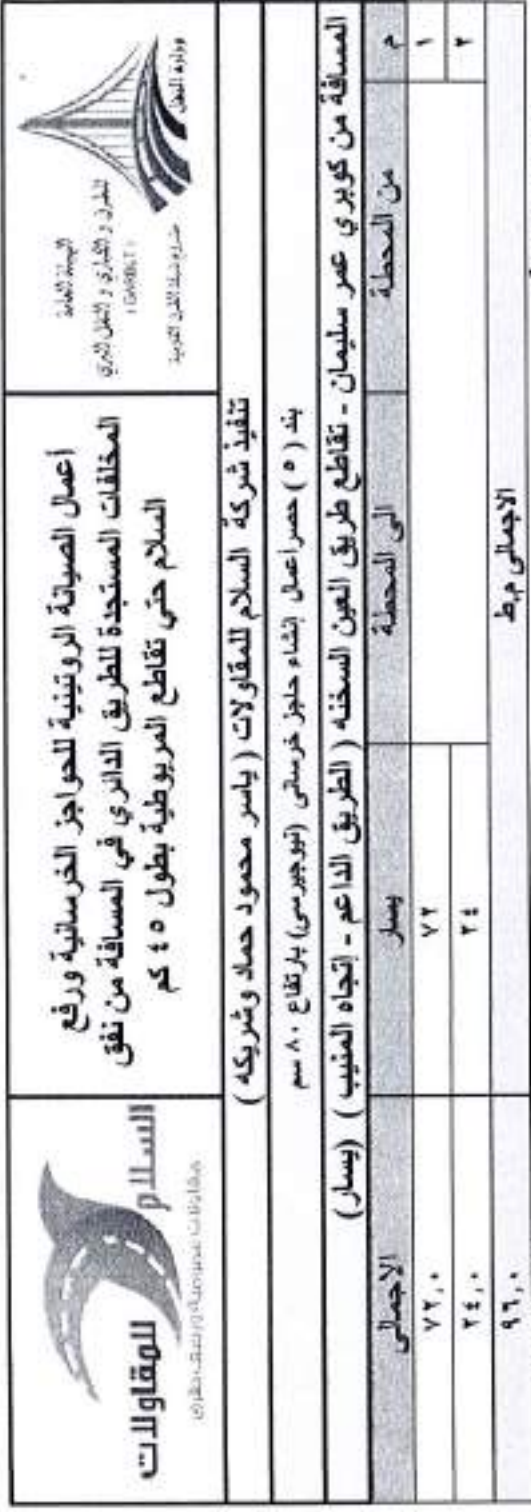 وزارة النقل
الهيئة العامة
للطرق و الكباري و النقل البري
( GARBLT )
مشروع شبكة الطرق القومية
أعمال الصيانة الروتينية للحواجز الخرسانية ورفع
المخلفات المستجدة للطريق الدائري في المسافة من نفق
السلام حتي تقاطع المريوطية بطول ٤٥ كم
السلام
للمقاولات
مقاولات عمومية ورصف طرق
تنفيذ شركة السلام للمقاولات ( ياسر محمود حماد وشريكه )
بند ( ٥ ) حصر اعمال إنشاء حاجز خرسانى (نيوجيرسى) بارتفاع ٨٠ سم
المسافة من كوبري عمر سليمان - تقاطع طريق العين السخنه ( الطريق الداعم - إتجاه المنيب ) (يسار)
م من المحطة الى المحطة يسار الاجمالى
١ ٧٢ ٧٢,٠
٢ ٢٤ ٢٤,٠
الاجمالى م.ط ٩٦,٠